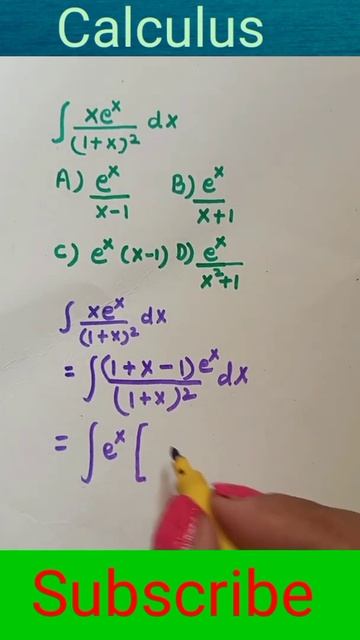 Calculus
∫ xeˣ/(1+x)² dx
A) eˣ/x-1 B) eˣ/x+1
C) eˣ (x-1) D) eˣ/x²+1
∫ xeˣ/(1+x)² dx
= ∫ (1+x-1)eˣ/(1+x)² dx
= ∫ eˣ [
Subscribe